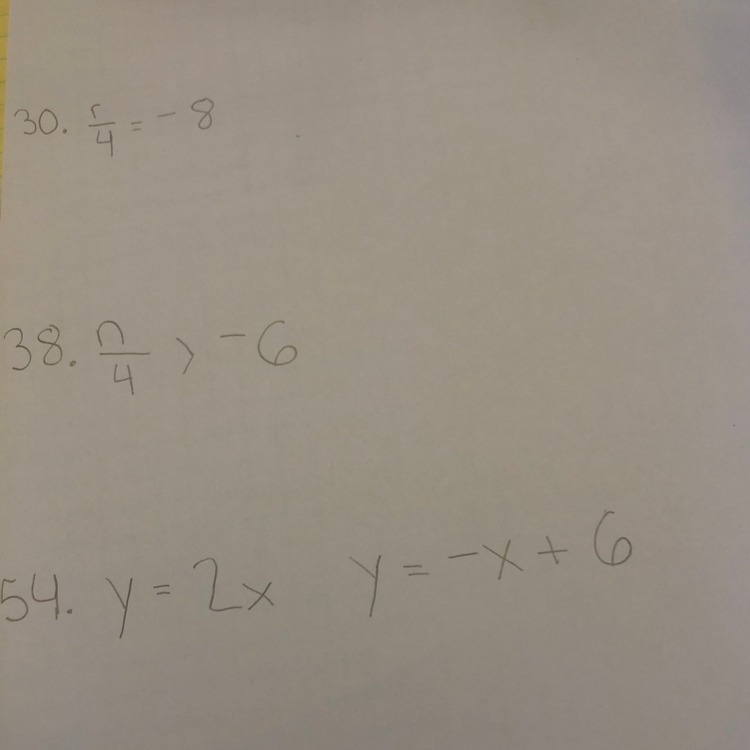 30. r/4 = -8
38. n/4 > -6
54. y = 2x y = -x + 6